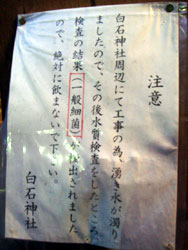 注意
白石神社周辺にて工事の為、湧き水が濁り
ましたので、その後水質検査をしたところ、
検査の結果(一般細菌)が検出されました
ので、絶対に飲まないで下さい。
白石神社